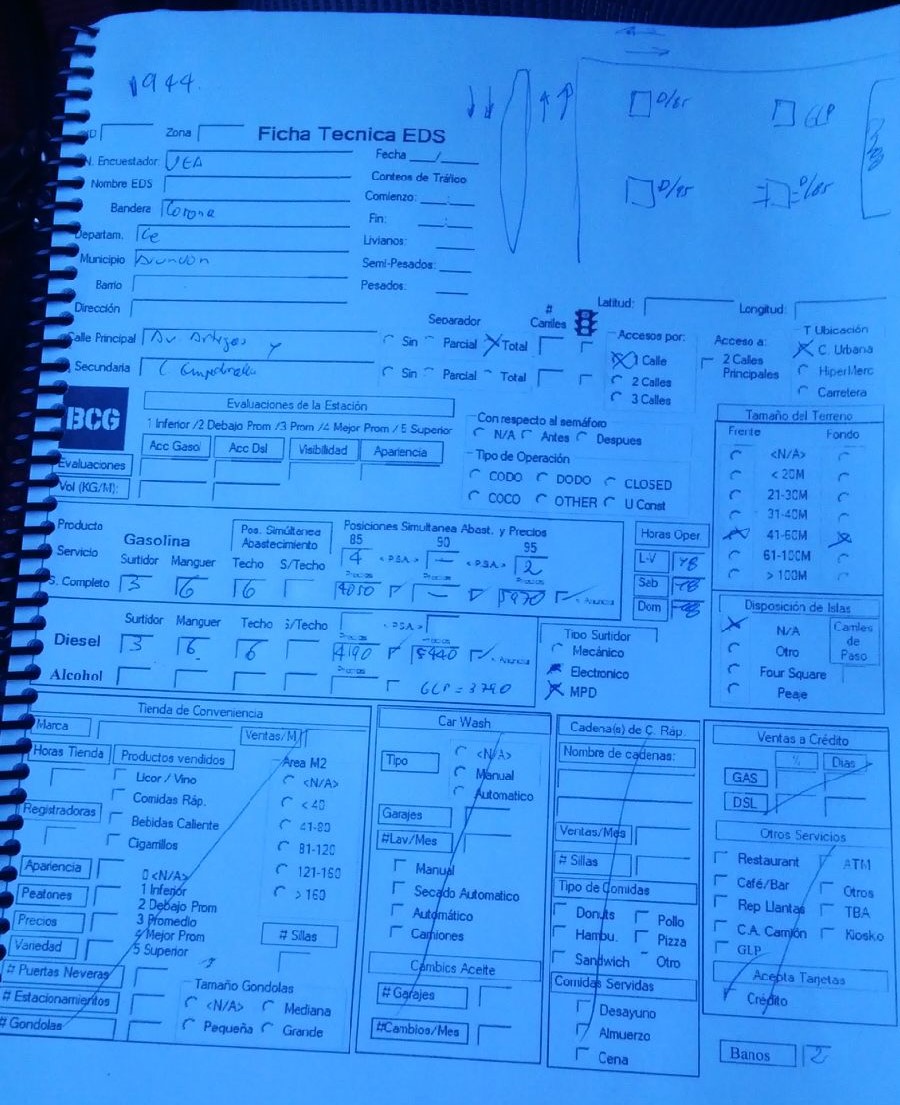 1944.
D/85
GLP
D/95
D/85
ID
Zona
Ficha Tecnica EDS
N. Encuestador
UEA
Fecha ___/____
Nombre EDS
Conteos de Tráfico
Bandera
Corona
Comienzo:
Departam.
Ce
Fin:
Municipio
Asuncion
Livianos:
Barrio
Semi-Pesados:
Dirección
Pesados:
Latitud:
Longitud:
Calle Principal
Av Artigas y
Separador
Sin
Parcial
Total
# Carriles
Secundaria
Sin
Parcial
Total
Accesos por:
1 Calle
2 Calles
3 Calles
Acceso a:
2 Calles
Principales
T Ubicación
C. Urbana
HiperMerc
Carretera
BCG
Evaluaciones de la Estación
1 Inferior /2 Debajo Prom /3 Prom /4 Mejor Prom / 5 Superior
Acc Gasol
Acc Dsl
Visibilidad
Apariencia
Evaluaciones
Vol (KG/M):
Con respecto al semáforo
N/A
Antes
Despues
Tipo de Operación
CODO
DODO
CLOSED
COCO
OTHER
U Const
Tamaño del Terreno
Frente
Fondo
<N/A>
< 20M
21-30M
31-40M
41-60M
61-100M
> 100M
Producto
Servicio
Gasolina
Pos. Simúltanea
Abastecimiento
Posiciones Simultanea Abast. y Precios
85
90
95
Surtidor
Manguer
Techo
S/Techo
4
< PSA >
-
< PSA >
2
S. Completo
3
6
6
4050
-
5970
Horas Oper.
L-V
Sab
Dom
Diesel
Surtidor
Manguer
Techo
S/Techo
< PSA >
3
6
6
4190
5440
Alcohol
GLP = 3790
Tipo Surtidor
Mecánico
Electronico
MPD
Disposición de Islas
N/A
Otro
Four Square
Peaje
Carriles
de
Paso
Tienda de Conveniencia
Marca
Ventas/M
Horas Tienda
Productos vendidos
Licor / Vino
Comidas Ráp.
Bebidas Caliente
Cigarrillos
Registradoras
Area M2
<N/A>
< 40
41-80
81-120
121-160
> 160
Apariencia
Peatones
Precios
Variedad
0 <N/A>
1 Inferior
2 Debajo Prom
3 Promedio
4 Mejor Prom
5 Superior
# Sillas
# Puertas Neveras
# Estacionamientos
# Gondolas
Tamaño Gondolas
<N/A>
Mediana
Pequeña
Grande
Car Wash
Tipo
<N/A>
Manual
Automatico
Garajes
#Lav/Mes
Manual
Secado Automatico
Automático
Camiones
Cambios Aceite
# Garajes
#Cambios/Mes
Cadena(s) de C. Ráp.
Nombre de cadenas:
Ventas/Mes
# Sillas
Tipo de Comidas
Donuts
Pollo
Hambu.
Pizza
Sandwich
Otro
Comidas Servidas
Desayuno
Almuerzo
Cena
Ventas a Crédito
%
Dias
GAS
DSL
Otros Servicios
Restaurant
ATM
Café/Bar
Otros
Rep Llantas
TBA
C.A. Camión
Kiosko
GLP
Acepta Tarjetas
Crédito
Banos
2